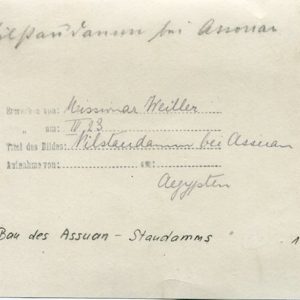 Nilstaudamm bei Assuan
Erworben von: Missionar Weiller
" am: IV 23
Titel des Bildes: Nilstaudamm bei Assuan
Aufnahme von: am:
Aegypten
Bau des Assuan - Staudamms " 1